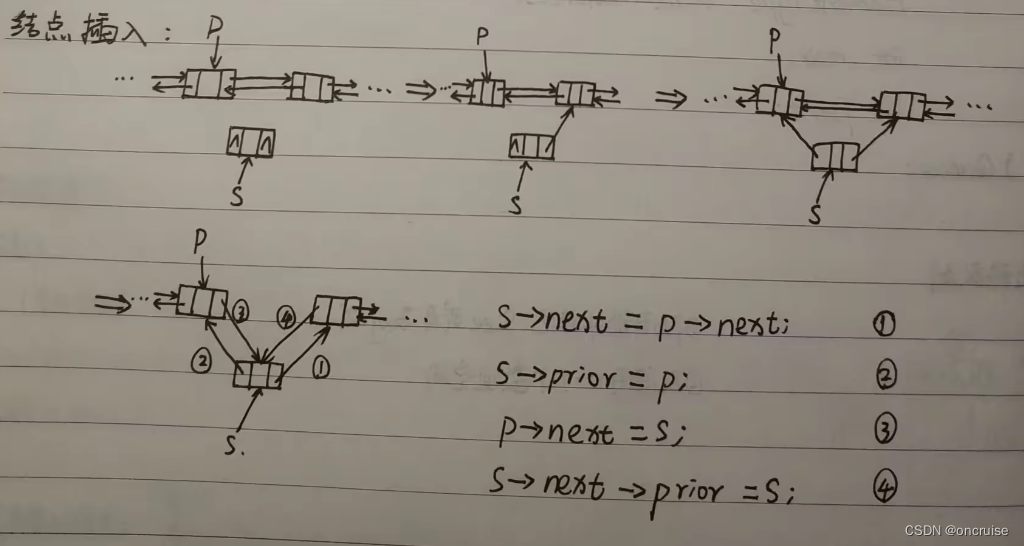 结点插入：
P
P
P
... ...
... ...
S
S
S
P
... ...
③ ④
② ①
S.
S→next = p→next; ①
S→prior = p; ②
P→next = S; ③
S→next→prior = S; ④
CSDN @oncruise